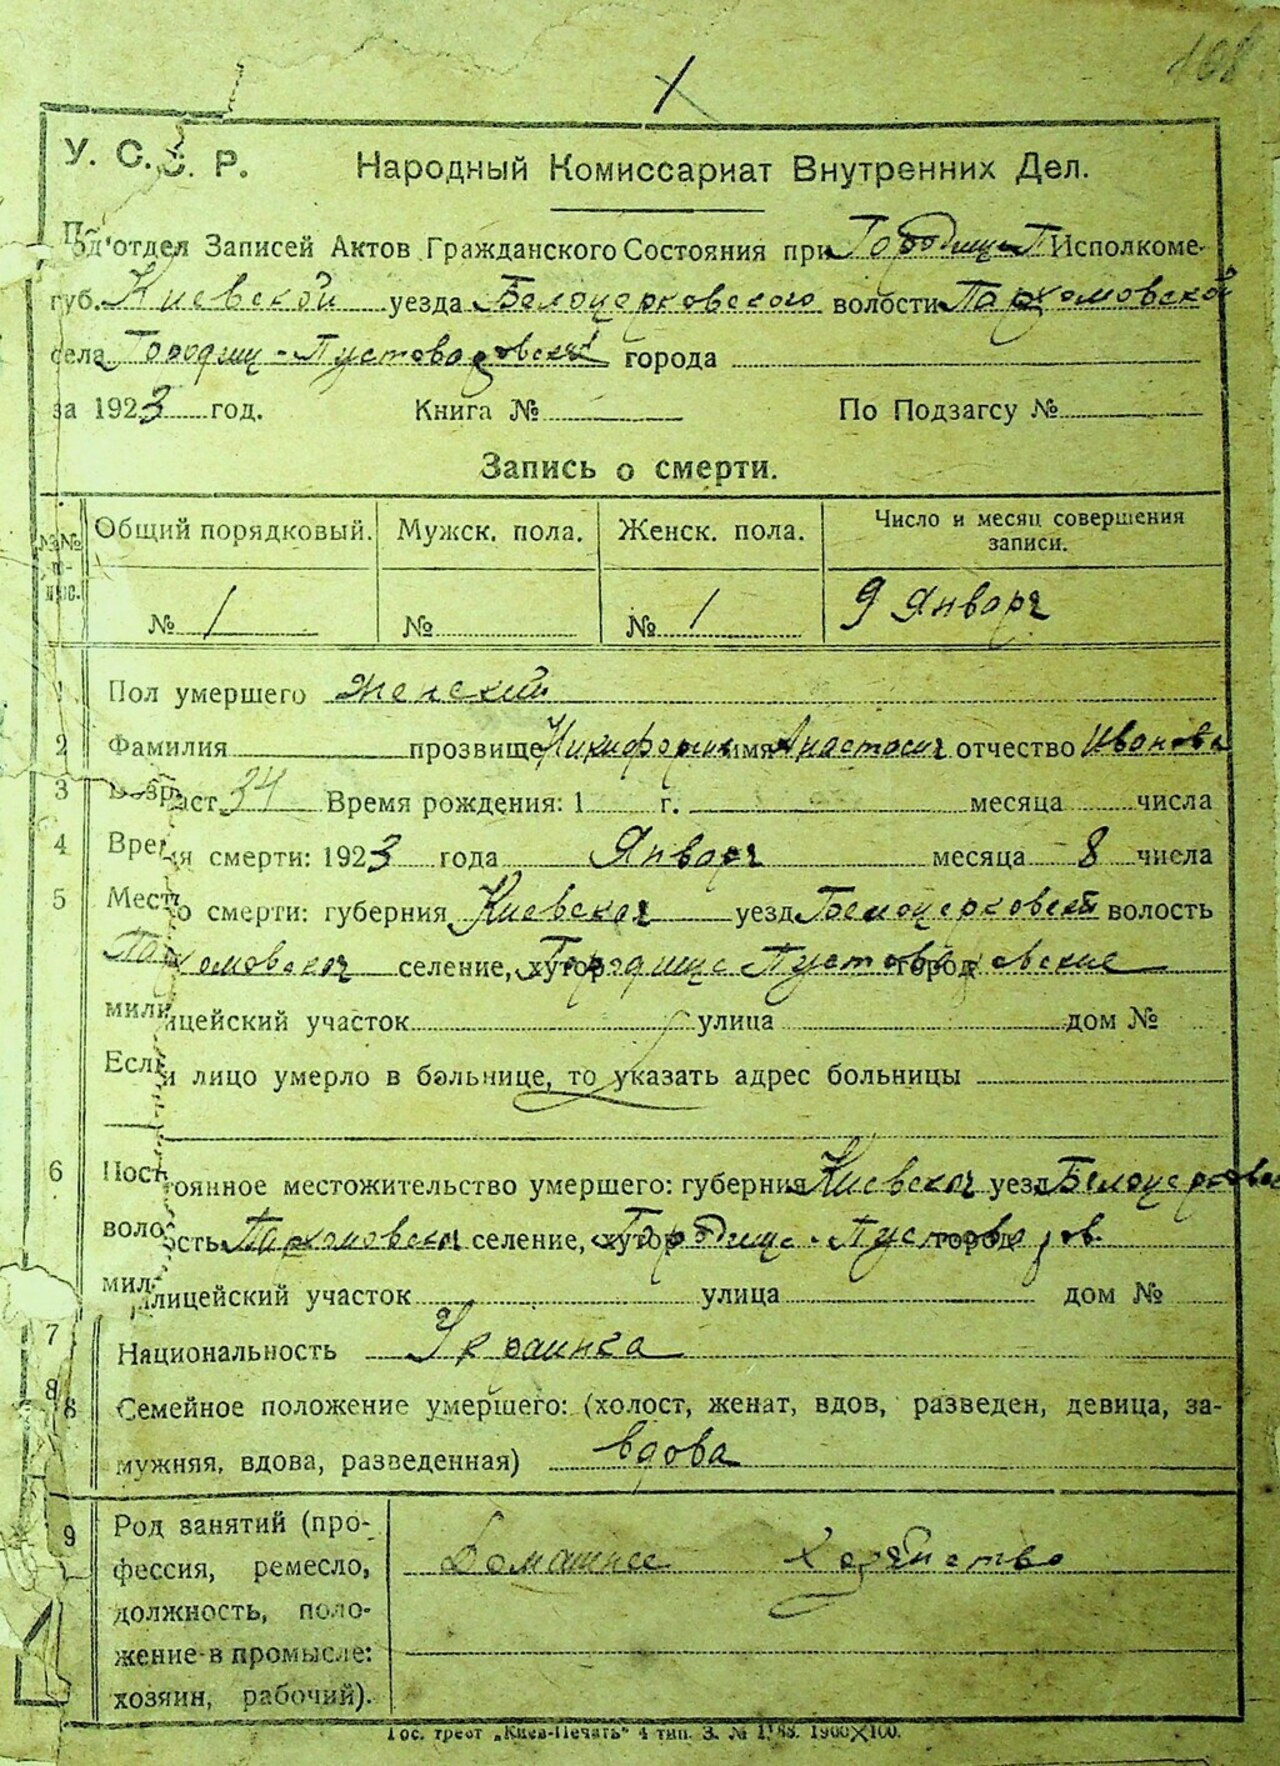 У. С. С. Р. Народный Комиссариат Внутренних Дел.
Под'отдел Записей Актов Гражданского Состояния при Исполкоме-
губ. Киевской уезда Белоцерковского волости Пархомовской
села Городищ-Пустоваровской города
за 1923 год. Книга № По Подзагсу №
Запись о смерти.
№№ Общий порядковый. Мужск. пола. Женск. пола. Число и месяц совершения
записи.
№ 1 № № 1 9 Января
1 Пол умершего Женский
2 Фамилия прозвище имя Анастасия отчество Иванова
3 Возраст 34 Время рождения: 1 г. месяца числа
4 Время смерти: 1923 года Января месяца 8 числа
5 Место смерти: губерния Киевская уезд Белоцерковский волость
Пархомовская селение, хутор город Городище Пустоваровские
милицейский участок улица дом №
Если лицо умерло в больнице, то указать адрес больницы
6 Постоянное местожительство умершего: губерния Киевская уезд Белоцерковс
волость Пархомовская селение, хутор город Городище-Пустоваров.
милицейский участок улица дом №
7 Национальность Украинка
8 Семейное положение умершего: (холост, женат, вдов, разведен, девица, за-
мужняя, вдова, разведенная) вдова
9 Род занятий (про-
фессия, ремесло, Домашнее хозяйство
должность, поло-
жение в промысле:
хозяин, рабочий).
Гос. трест „Киев-Печать" 4 тип. З. № 1900X100.